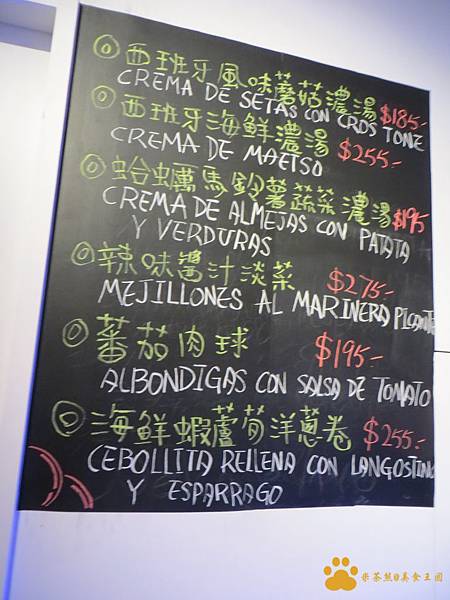 西班牙風味蘑菇濃湯 $185.-
CREMA DE SETAS CON CROS TONE
西班牙海鮮濃湯 $255.-
CREMA DE MAETSO
蛤蠣馬鈴薯蔬菜濃湯 $195
CREMA DE ALMEJAS CON PATATA
Y VERDURAS
辣味醬汁淡菜 $275.-
MEJILLONES AL MARINERA PICANTE
蕃茄肉球 $195.-
ALBONDIGAS CON SALSA DE TOMATO
海鮮蝦蘆荀洋蔥卷 $255.-
CEBOLLITA RELLENA CON LANGOSTINO
Y ESPARRAGO
柴茶熊@美食王國